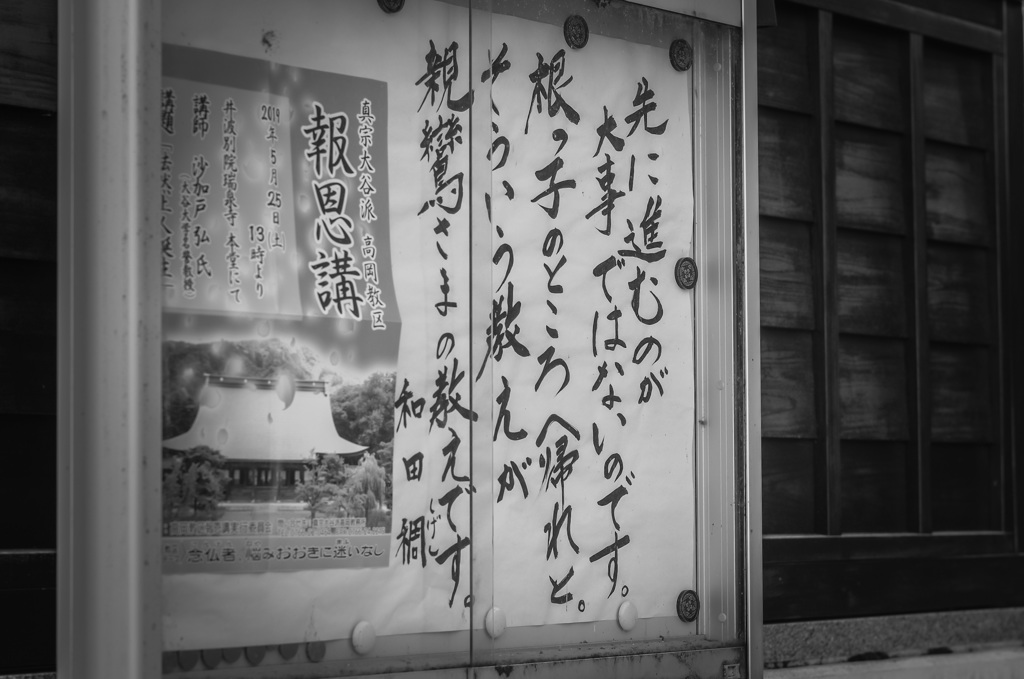 先に進むのが
大事ではないのです。
根っ子のところへ帰れと
そういう教えが
親鸞さまの教えです。
和田稠
しげし
真宗大谷派 高岡教区
報恩講
2019年5月25日(土)
13時より
井波別院瑞泉寺 本堂にて
講師 沙加戸 弘 氏
(大谷大学名誉教授)
念仏者 悩みおおきに迷いなし